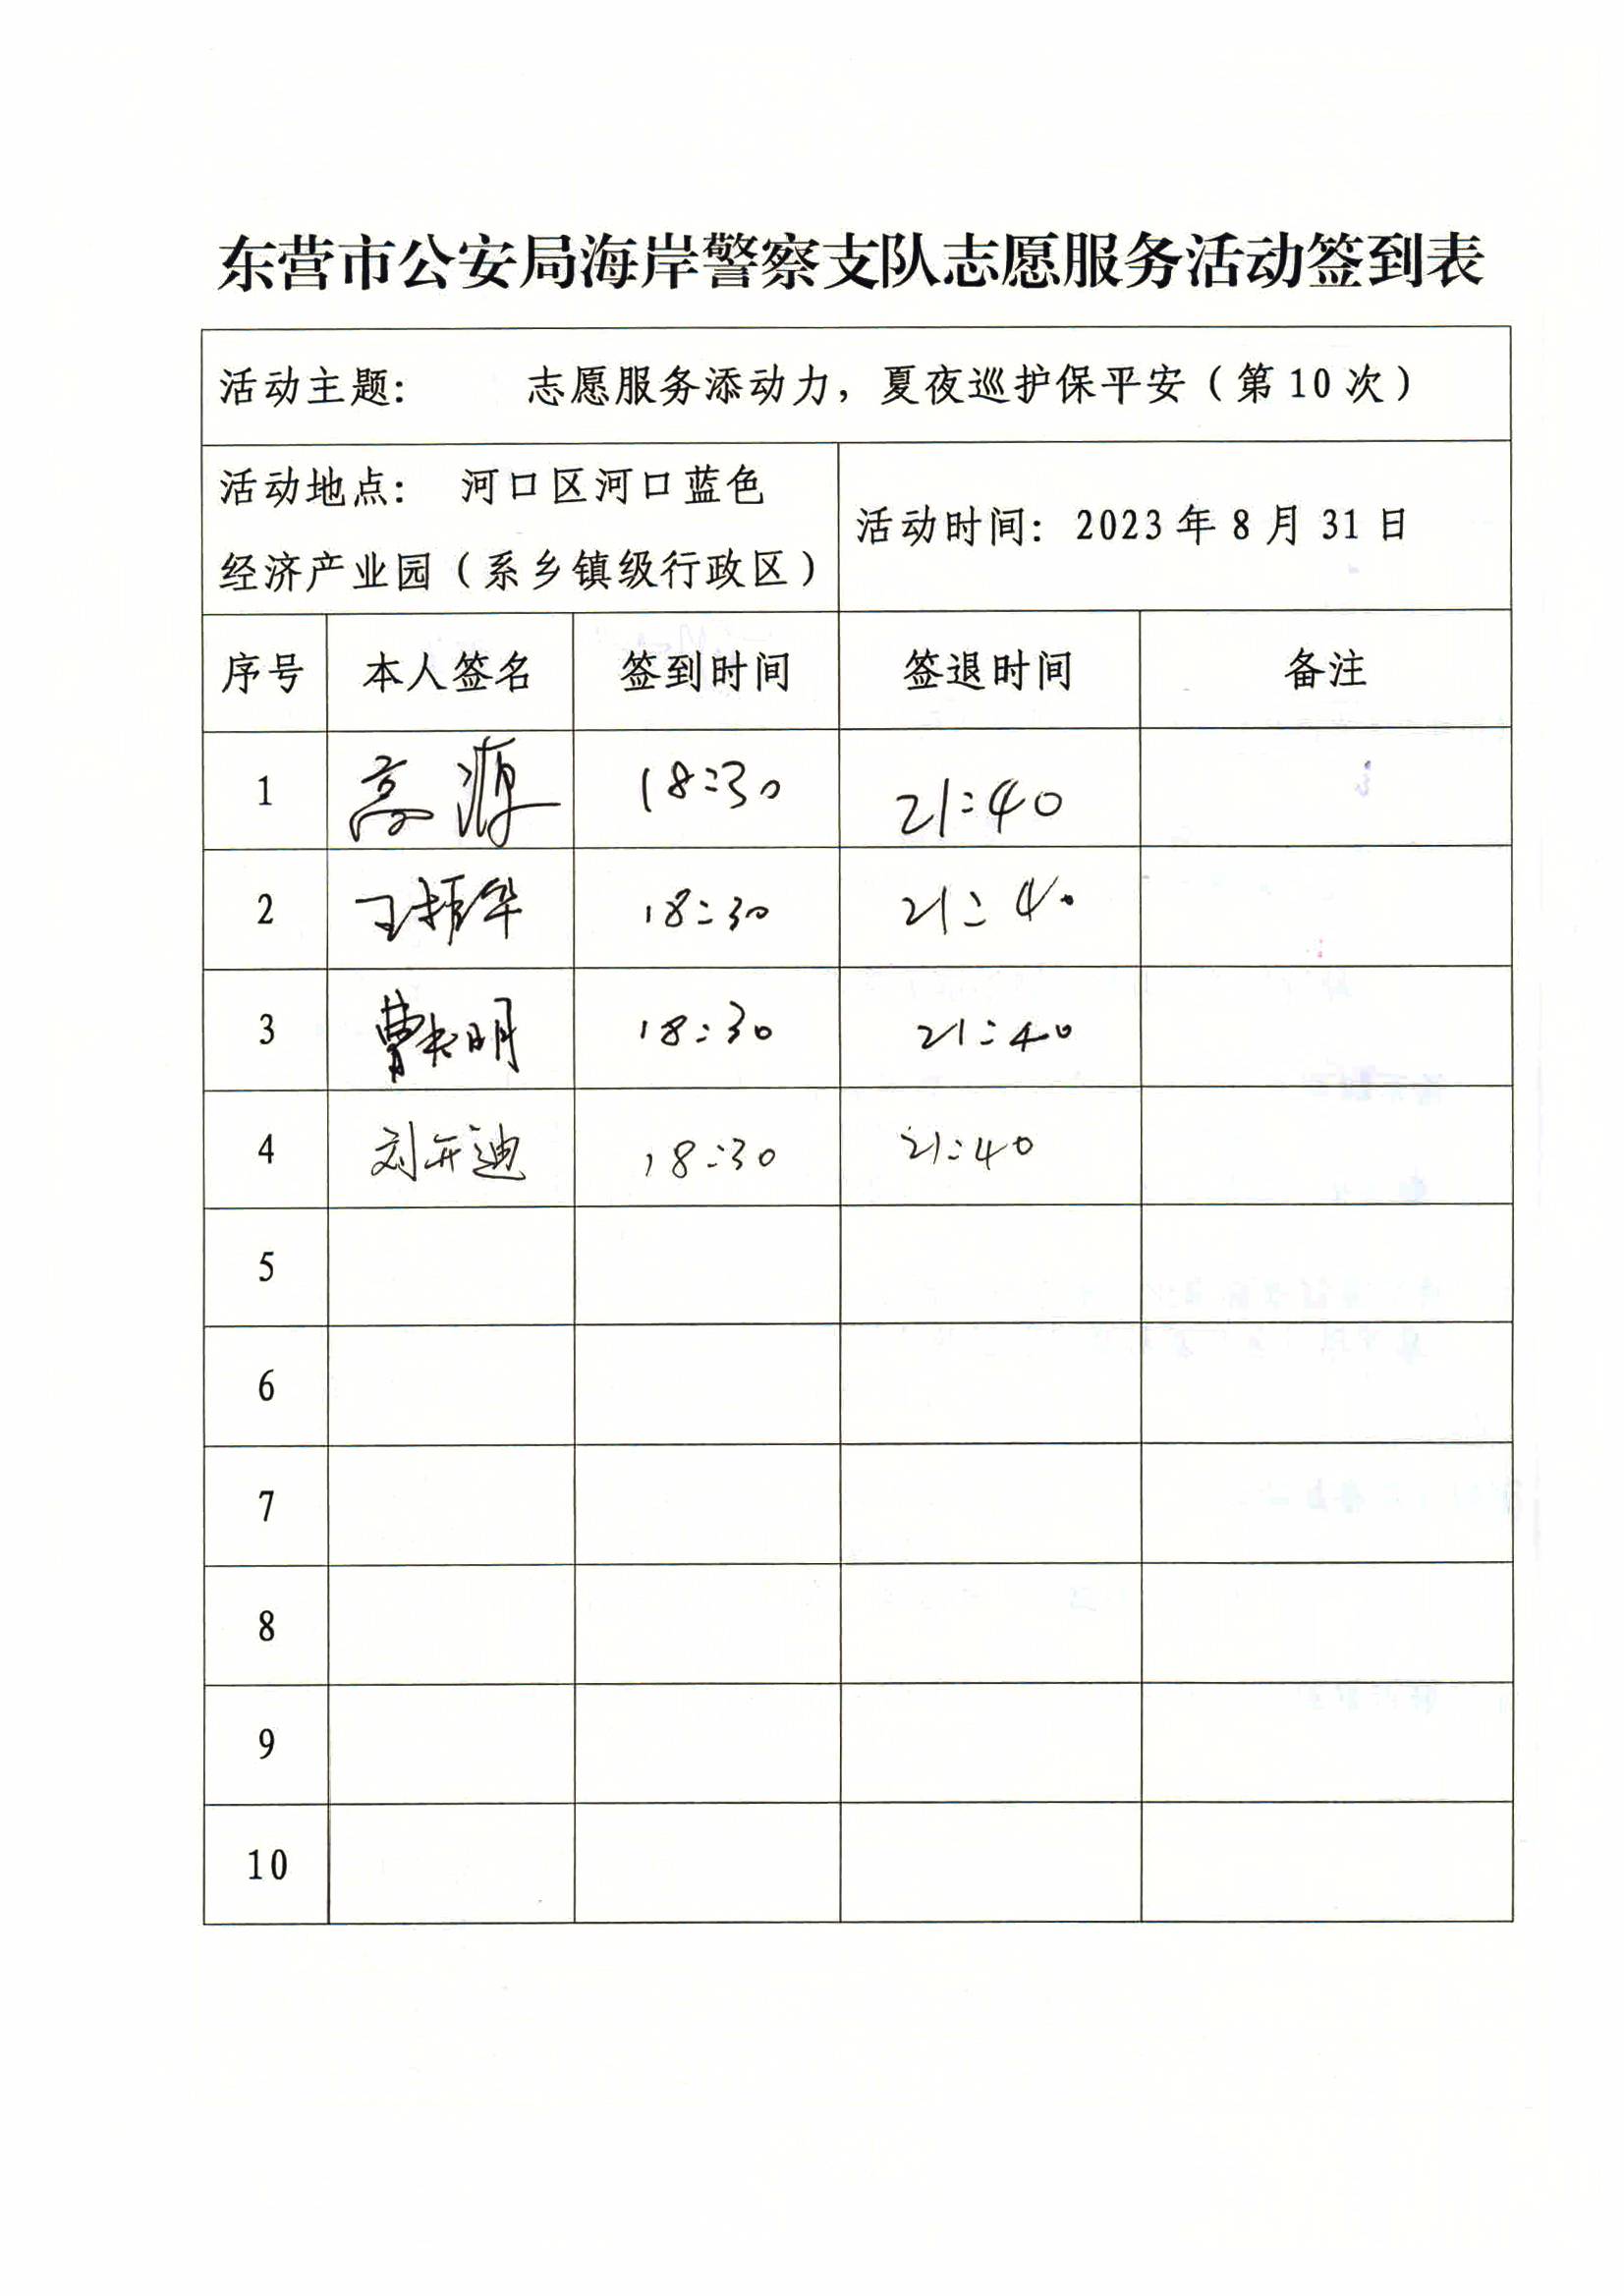 东营市公安局海岸警察支队志愿服务活动签到表
活动主题: 志愿服务添动力，夏夜巡护保平安（第10次）
活动地点: 河口区河口蓝色
经济产业园（系乡镇级行政区）
活动时间: 2023年8月31日
序号 本人签名 签到时间 签退时间 备注
1 高源 18:30 21:40
2 王振华 18:30 21:40
3 曹长明 18:30 21:40
4 刘开迪 18:30 21:40
5
6
7
8
9
10